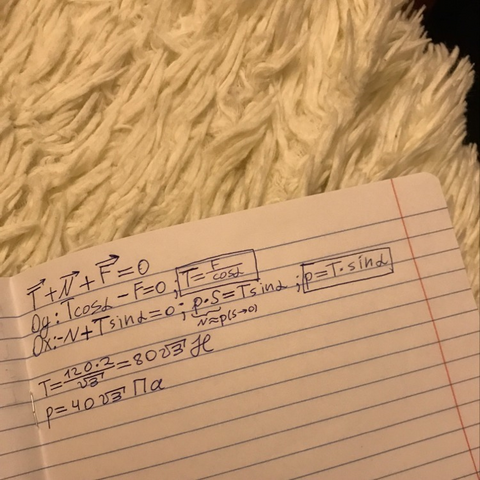 T⃗ + N⃗ + F⃗ = 0
Oy: Tcosα - F = 0 ; T = F/cosα
Ox: -N + Tsinα = 0 ; p·S = Tsinα ; p = T·sinα
N≈p(s→0)
T = 120·2/√3 = 80√3 H
p = 40√3 Па